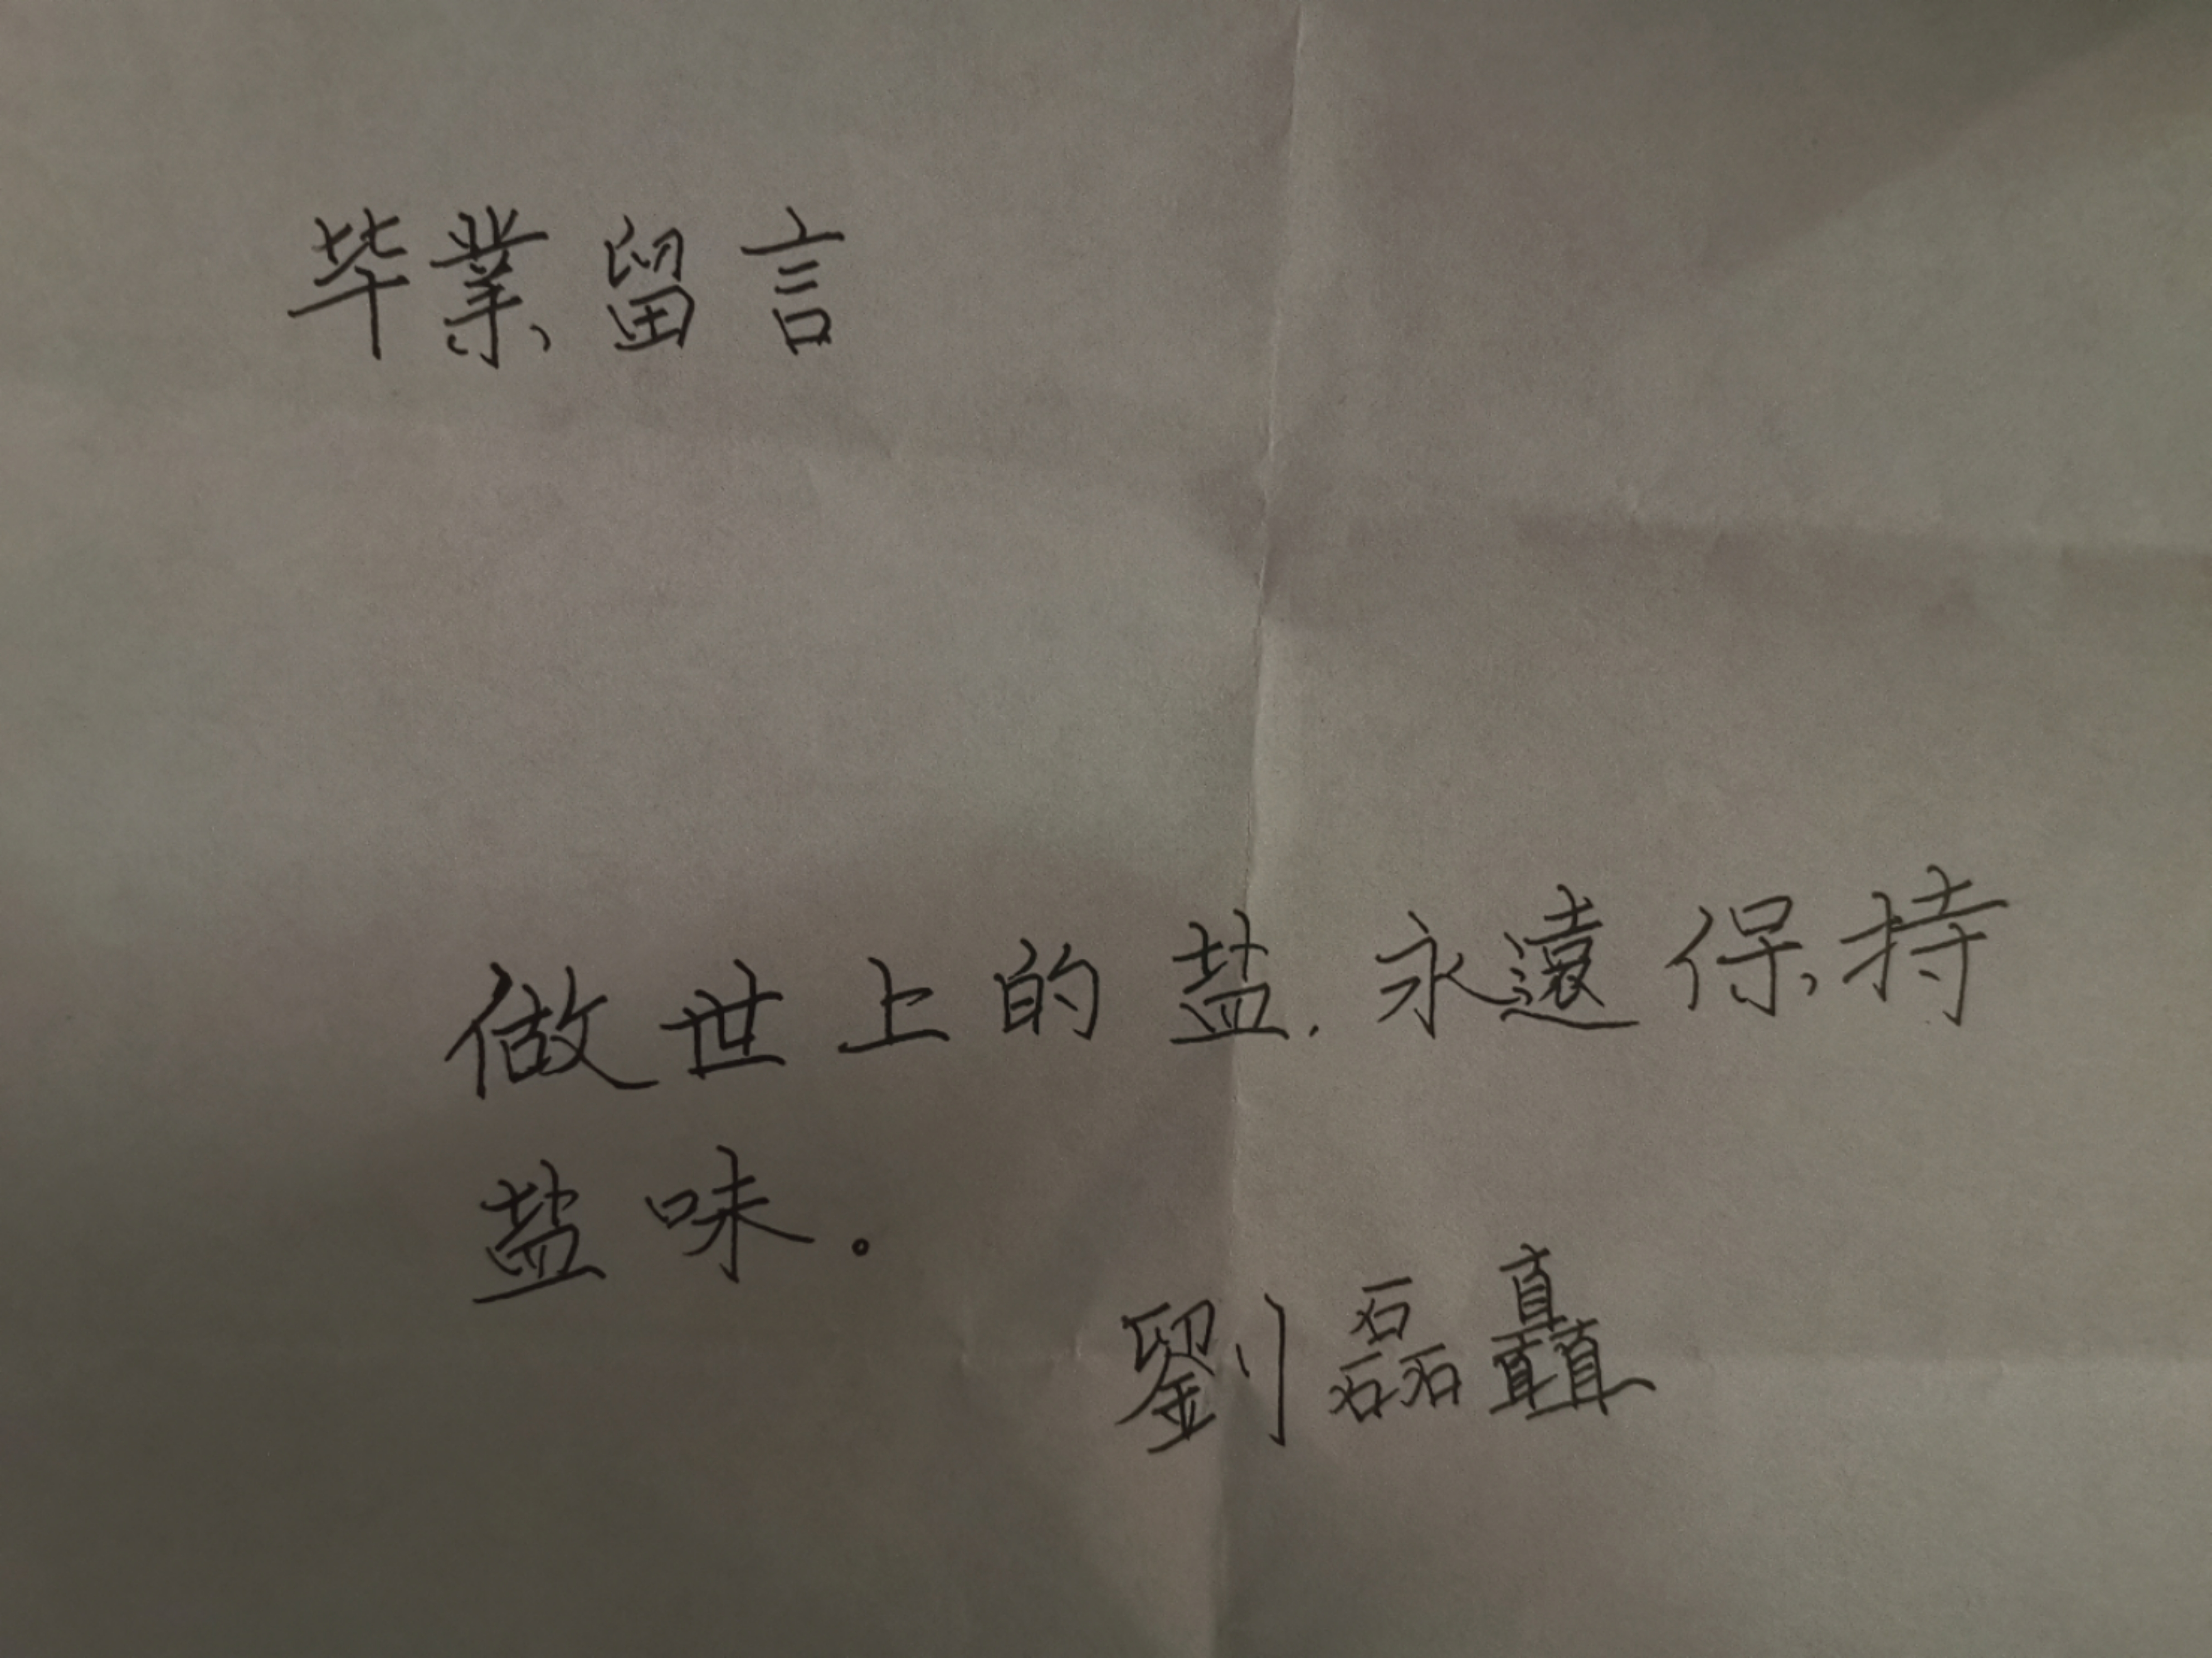 毕業留言
做世上的盐.永遠保持
盐味。
劉磊矗